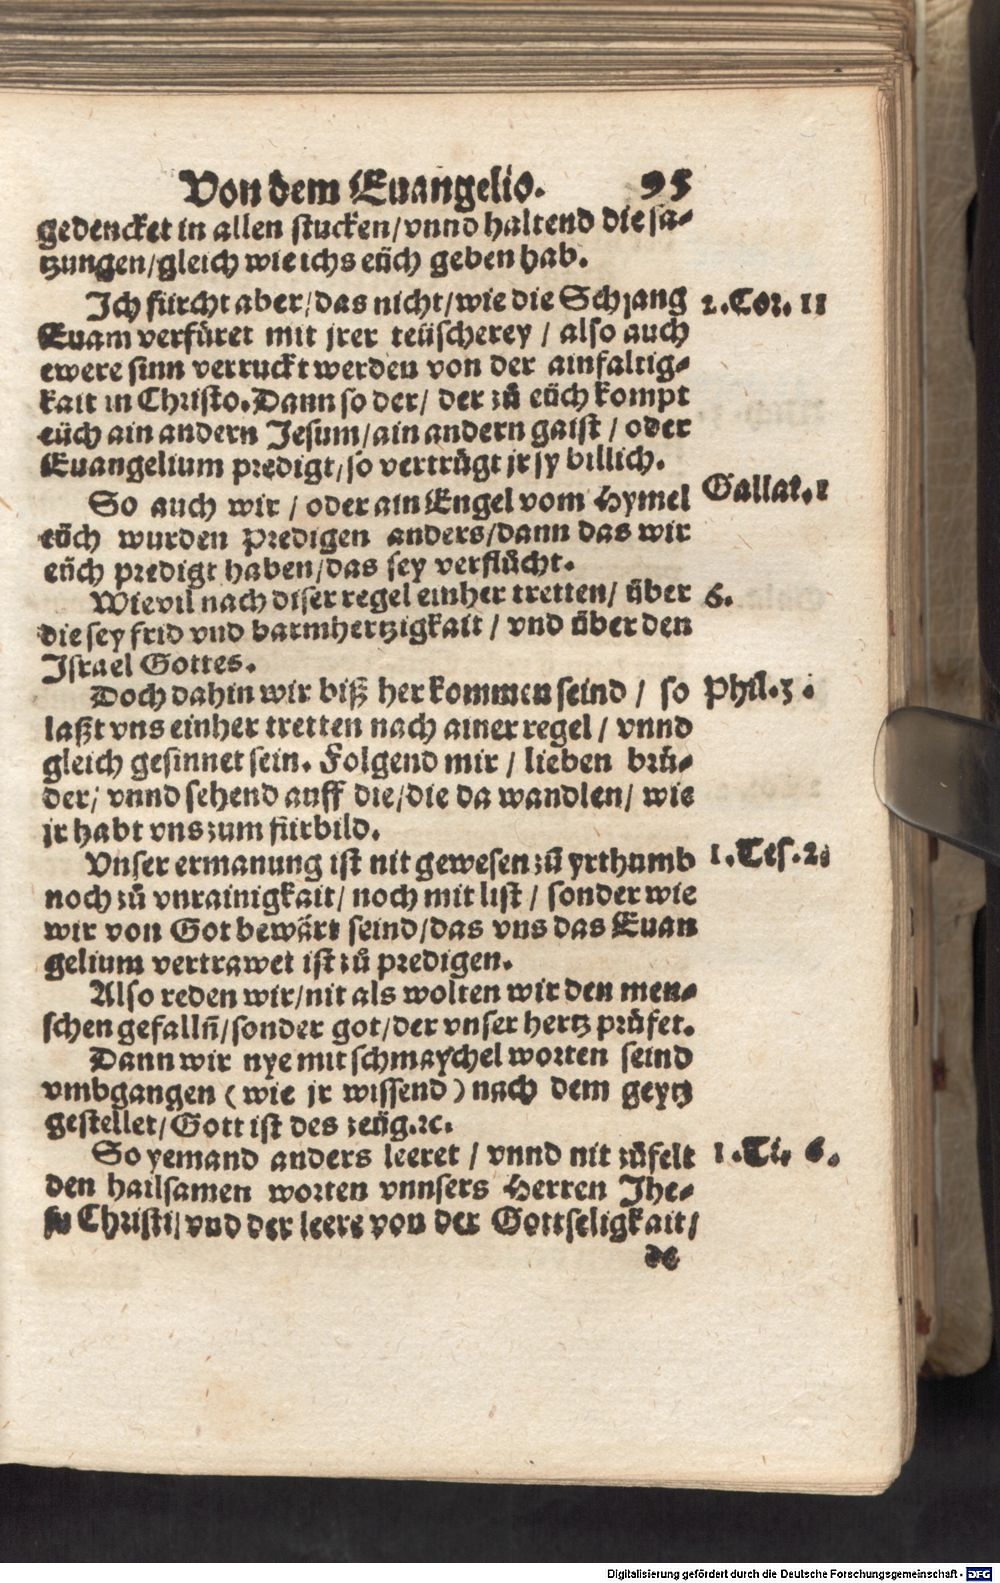 Von dem Euangelio. 95
gedencket in allen stucken/vnnd haltend die sa-
tzungen/gleich wie ichs eüch geben hab.
Ich fürcht aber/das nicht/wie die Schlang 2.Cor. 11
Euam verfüret mit jrer teüscherey / also auch
ewere sinn verruckt werden von der ainfaltig-
kait in Christo. Dann so der/ der zů eüch kompt
eüch ain andern Jesum/ain andern gaist / oder
Euangelium predigt/so vertrůgt jr sy billich.
So auch wir / oder ain Engel vom Hymel Gallat.1
eüch wurden Predigen anders/dann das wir
eüch predigt haben/das sey verflůcht.
Wievil nach diser regel einher tretten/ über 6.
die sey frid vnd barmhertzigkait / vnd über den
Israel Gottes.
Doch dahin wir biß her kommen seind / so Phil.3.
laßt vns einher tretten nach ainer regel / vnnd
gleich gesinnet sein. Folgend mir / lieben brü-
der/ vnnd sehend auff die/die da wandlen/ wie
jr habt vns zum fürbild.
Vnser ermanung ist nit gewesen zů yrthumb 1.Tes.2.
noch zů vnrainigkait/ noch mit list / sonder wie
wir von Got bewärt seind/das vns das Euan
gelium vertrawet ist zů predigen.
Also reden wir/nit als wolten wir den men-
schen gefallñ/sonder got/der vnser hertz prüfet.
Dann wir nye mit schmaychel worten seind
vmbgangen (wie jr wissend) nach dem geytz
gestellet/Gott ist des zeüg.⁊c.
So yemand anders leeret / vnnd nit zůfelt 1.Ti. 6.
den hailsamen worten vnnsers Herren Jhe-
su Christi/vnd der leere von der Gottseligkait/
de
Digitalisierung gefördert durch die Deutsche Forschungsgemeinschaft - DFG